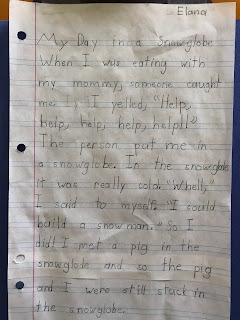 Elana
My Day in a Snowglobe
When I was eating with
my mommy, someone caught
me. I yelled, "Help,
help, help, help, help!!"
The person put me in
a snowglobe. In the snowglobe
it was really cold. "Whell,"
I said to myself, "I sould
baild a snow man." So I
did! I met a pig in the
snowglode and so the pig
and I were still stuck in
the snowglobe.